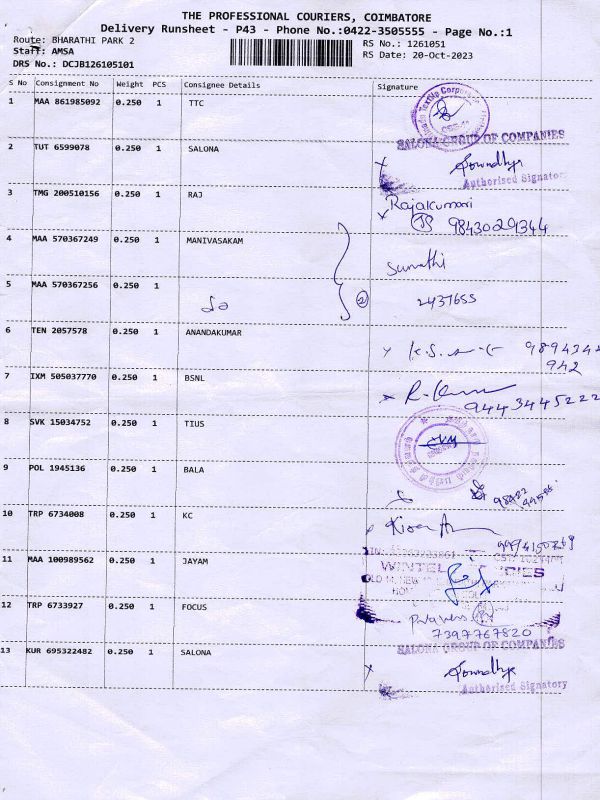 THE PROFESSIONAL COURIERS, COIMBATORE
Delivery Runsheet - P43 - Phone No.:0422-3505555 - Page No.:1
Route: BHARATHI PARK 2
Staff: AMSA
DRS No.: DCJB126105101
RS No.: 1261051
RS Date: 20-Oct-2023
S No Consignment No Weight PCS Consignee Details Signature
1 MAA 861985092 0.250 1 TTC
2 TUT 6599078 0.250 1 SALONA
SALONA GROUP OF COMPANIES
Authorised Signatory
3 TMG 200510156 0.250 1 RAJ
Rajakumari
9843029344
4 MAA 570367249 0.250 1 MANIVASAKAM
Sumathi
5 MAA 570367256 0.250 1
2 2437655
6 TEN 2057578 0.250 1 ANANDAKUMAR
7 IXM 505037770 0.250 1 BSNL
9443445222
8 SVK 15034752 0.250 1 TIUS
9 POL 1945136 0.250 1 BALA
10 TRP 6734008 0.250 1 KC
11 MAA 100989562 1 0.250 1 JAYAM
12 TRP 6733927 0.250 1 FOCUS
7397767820
13 KUR 695322482 0.250 1 SALONA
SALONA GROUP OF COMPANIES
Authorised Signatory